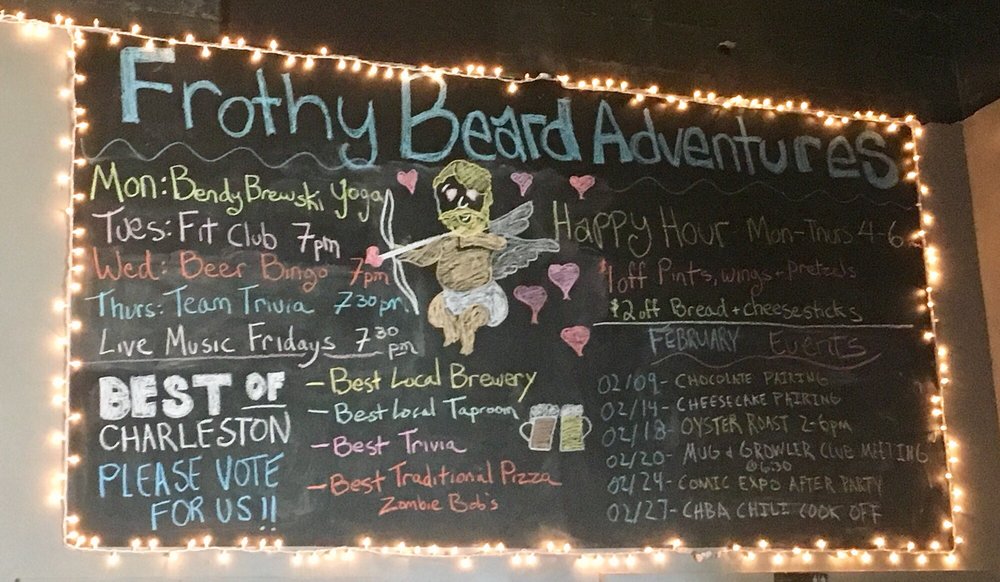 Frothy Beard Adventures
Mon: Bendy Brewski Yoga
Tues: Fit Club 7pm
Wed: Beer Bingo 7pm
Thurs: Team Trivia 730pm
Live Music Fridays 730 pm
Happy Hour Mon-Thurs 4-6
$1 off Pints, wings + pretzels
$2 off Bread + cheesesticks
BEST OF
CHARLESTON
PLEASE VOTE
FOR US!!
- Best Local Brewery
- Best Local Taproom
- Best Trivia
- Best Traditional Pizza
Zombie Bob's
FEBRUARY Events
02/09- CHOCOLATE PAIRING
02/14- CHEESECAKE PAIRING
02/18- OYSTER ROAST 2-6pm
02/20- MUG & GROWLER CLUB MEETING
@630
02/24- COMIC EXPO AFTER PARTY
02/27- CHBA CHILI COOK OFF